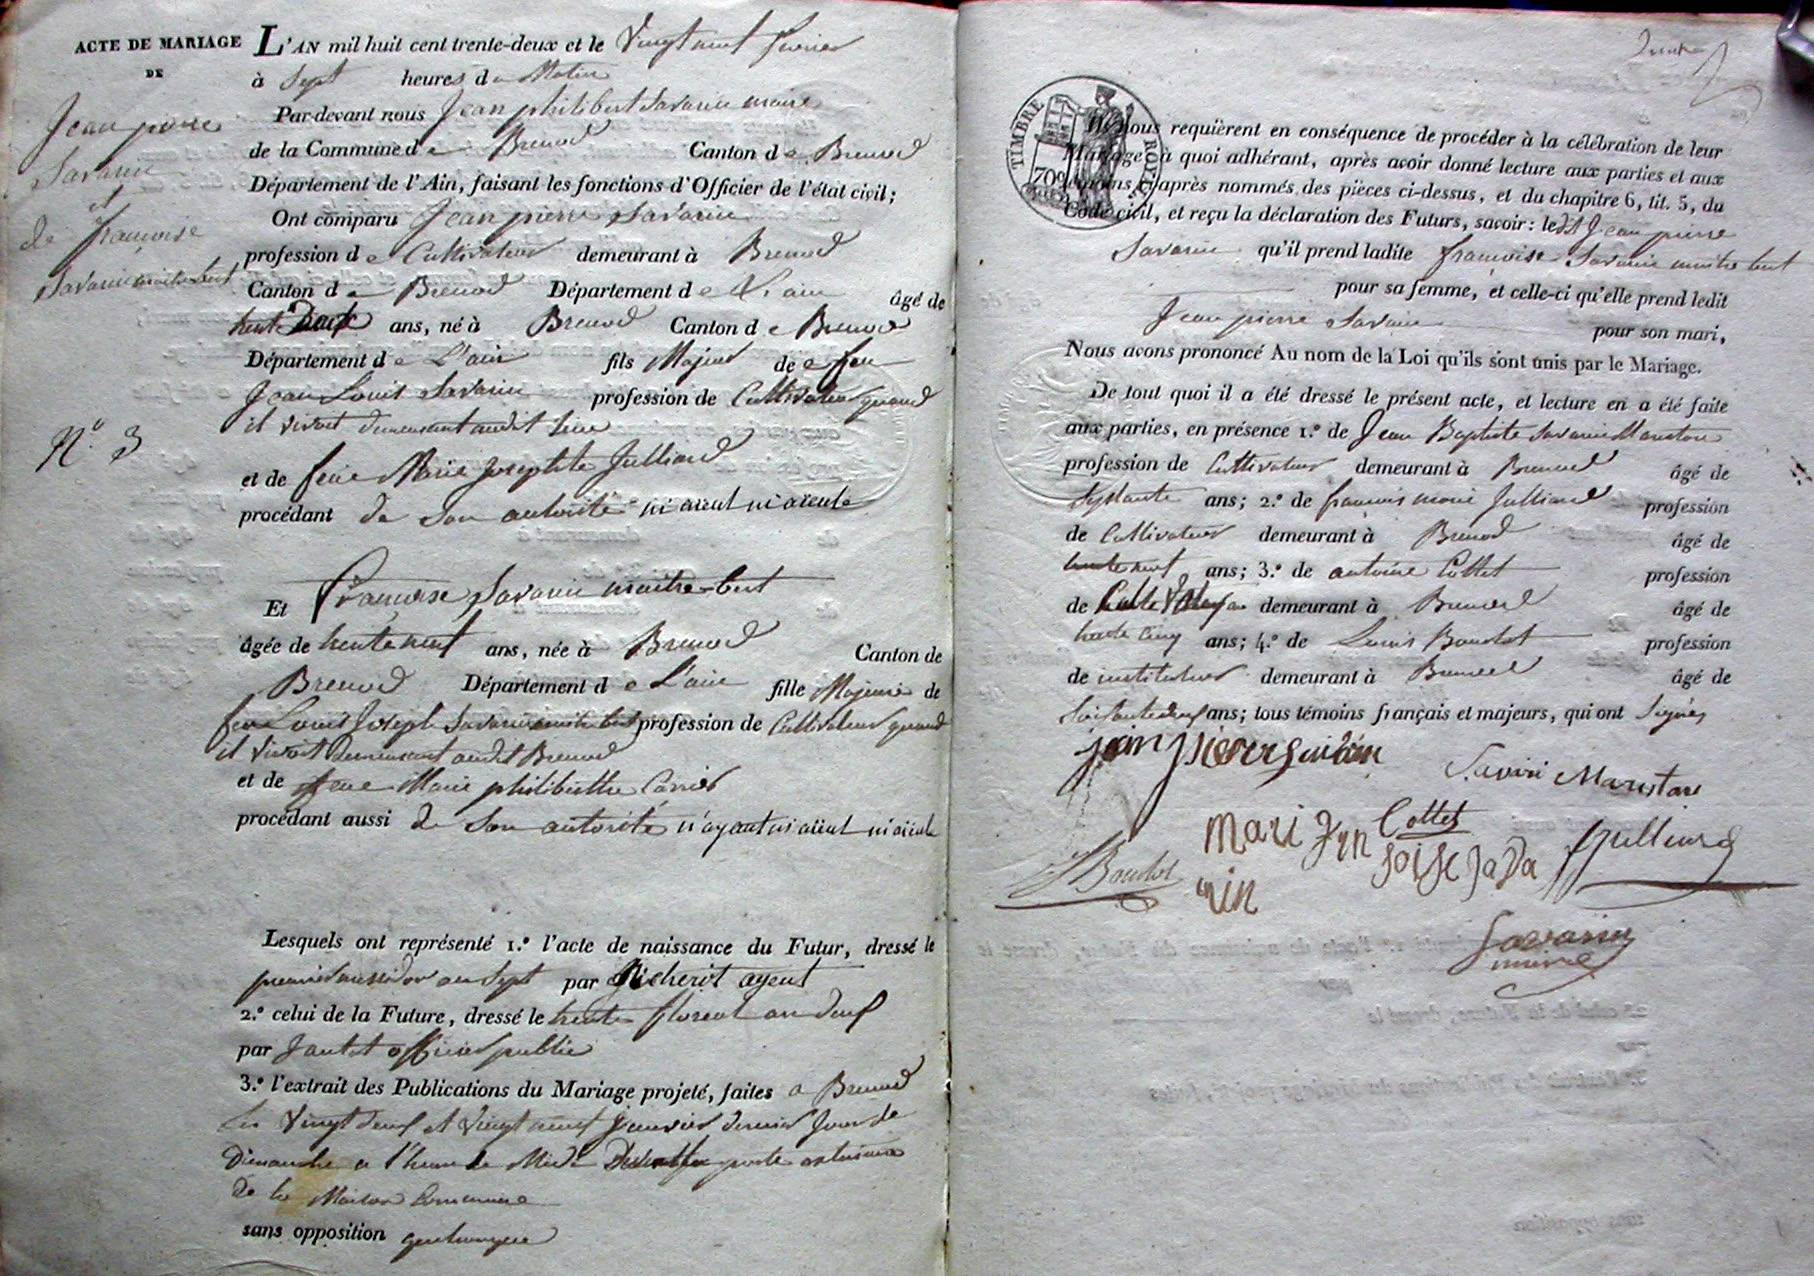 ACTE DE MARIAGE
DE
Jean pierre
Savarin
et
de françoise
Savarin maitre-bert
N.º 3
L'AN mil huit cent trente-deux et le Vingt neuf fevrier
à Sept heures du Matin
Par-devant nous Jean philibert Savarin maire
de la Commune de Brenod Canton de Brenod
Département de l'Ain, faisant les fonctions d'Officier de l'état civil;
Ont comparu Jean pierre Savarin
profession de Cultivateur demeurant à Brenod
Canton de Brenod Département de L'ain âgé de
trente Deux ans, né à Brenod Canton de Brenod
Département de L'ain fils Majeur de feu
Jean Louis Savarin profession de Cultivateur quand
il vivoit demeurant audit lieu
et de feue Marie Josephte Julliard
procédant de son autorité ni aieul ni aieule
Et françoise Savarin maitre-bert
âgée de trente neuf ans, née à Brenod Canton de
Brenod Département de L'ain fille Majeure de
feu Louis Joseph Savarin maitre bert profession de Cultivateur quand
il vivoit Demeurant audit Brenod
et de feue Marie philiberthe Carrier
procédant aussi de Son autorité n'ayant ni aieul ni aieule
Lesquels ont représenté 1.º l'acte de naissance du Futur, dressé le
premier messidor an Sept par agent
2.º celui de la Future, dressé le trente floreal an deux
par officier public
3.º l'extrait des Publications du Mariage projeté, faites a Brenod
les Vingt deux et Vingt neuf janvier dernier Jour de
Dimanche a l'heure de Midi porte exterieure
de la Maison Commune
sans opposition quelconque
TIMBRE ROYAL
70c
Ils nous requièrent en conséquence de procéder à la célébration de leur
Mariage à quoi adhérant, après avoir donné lecture aux parties et aux
témoins ci-après nommés, des pièces ci-dessus, et du chapitre 6, tit. 5, du
Code civil, et reçu la déclaration des Futurs, savoir: ledit Jean pierre
Savarin qu'il prend ladite françoise Savarin maitre bert
pour sa femme, et celle-ci qu'elle prend ledit
Jean pierre Savarin pour son mari,
Nous avons prononcé Au nom de la Loi qu'ils sont unis par le Mariage.
De tout quoi il a été dressé le présent acte, et lecture en a été faite
aux parties, en présence 1.º de Jean Baptiste Savarin Marestan
profession de Cultivateur demeurant à Brenod âgé de
ans; 2.º de françois marie Julliard profession
de Cultivateur demeurant à Brenod âgé de
trente neuf ans; 3.º de antoine Cottet profession
de demeurant à Brenod âgé de
trente cinq ans; 4.º de Louis Boudot profession
de instituteur demeurant à Brenod âgé de
ans; tous témoins français et majeurs, qui ont Signés
jean pierre
Savarin Marestan
Cottet
mari
Julliard
Boudot
Savarin
maire